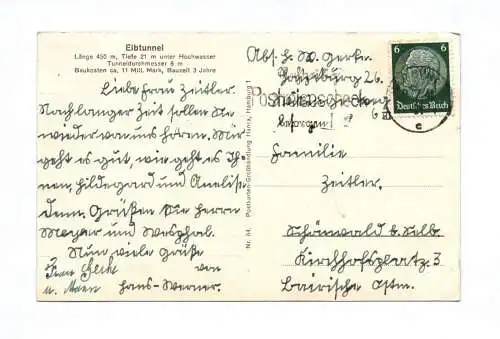 Elbtunnel
Länge 450 m, Tiefe 21 m unter Hochwasser
Tunneldurchmesser 6 m
Baukosten ca. 11 Mill. Mark, Bauzeit 3 Jahre
Liebe Frau Zeitler.
Nach langer Zeit sollen Sie
wieder von uns hören. Mir
geht es gut, wie geht es Ih-
nen, Hildegard und Anelise
denn. Grüßen Sie Herrn
Meyer und Wesphal.
Nun viele Grüße
von
u. Mann Hans-Werner.
Nr. H. Postkarten-Großhandlung Hamburg 1
Abs. H. W. Gerke.
26.
Postscheck
besorgen!
6 6
Deutsches Reich
c
Familie
Zeitler.
Schönwald b. Selb.
Kirchhofsplatz 3
Bairische Ostm.